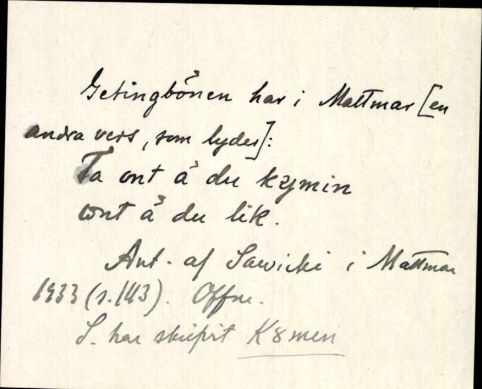 Getingbönen har i Mattmar [en
andra vers, som lyder]:
Ta ont å du kymin
ont å du lik.
Ant. af Sawicki i Mattmar
1933 (s. 143). Offne.
S. har skrifvit